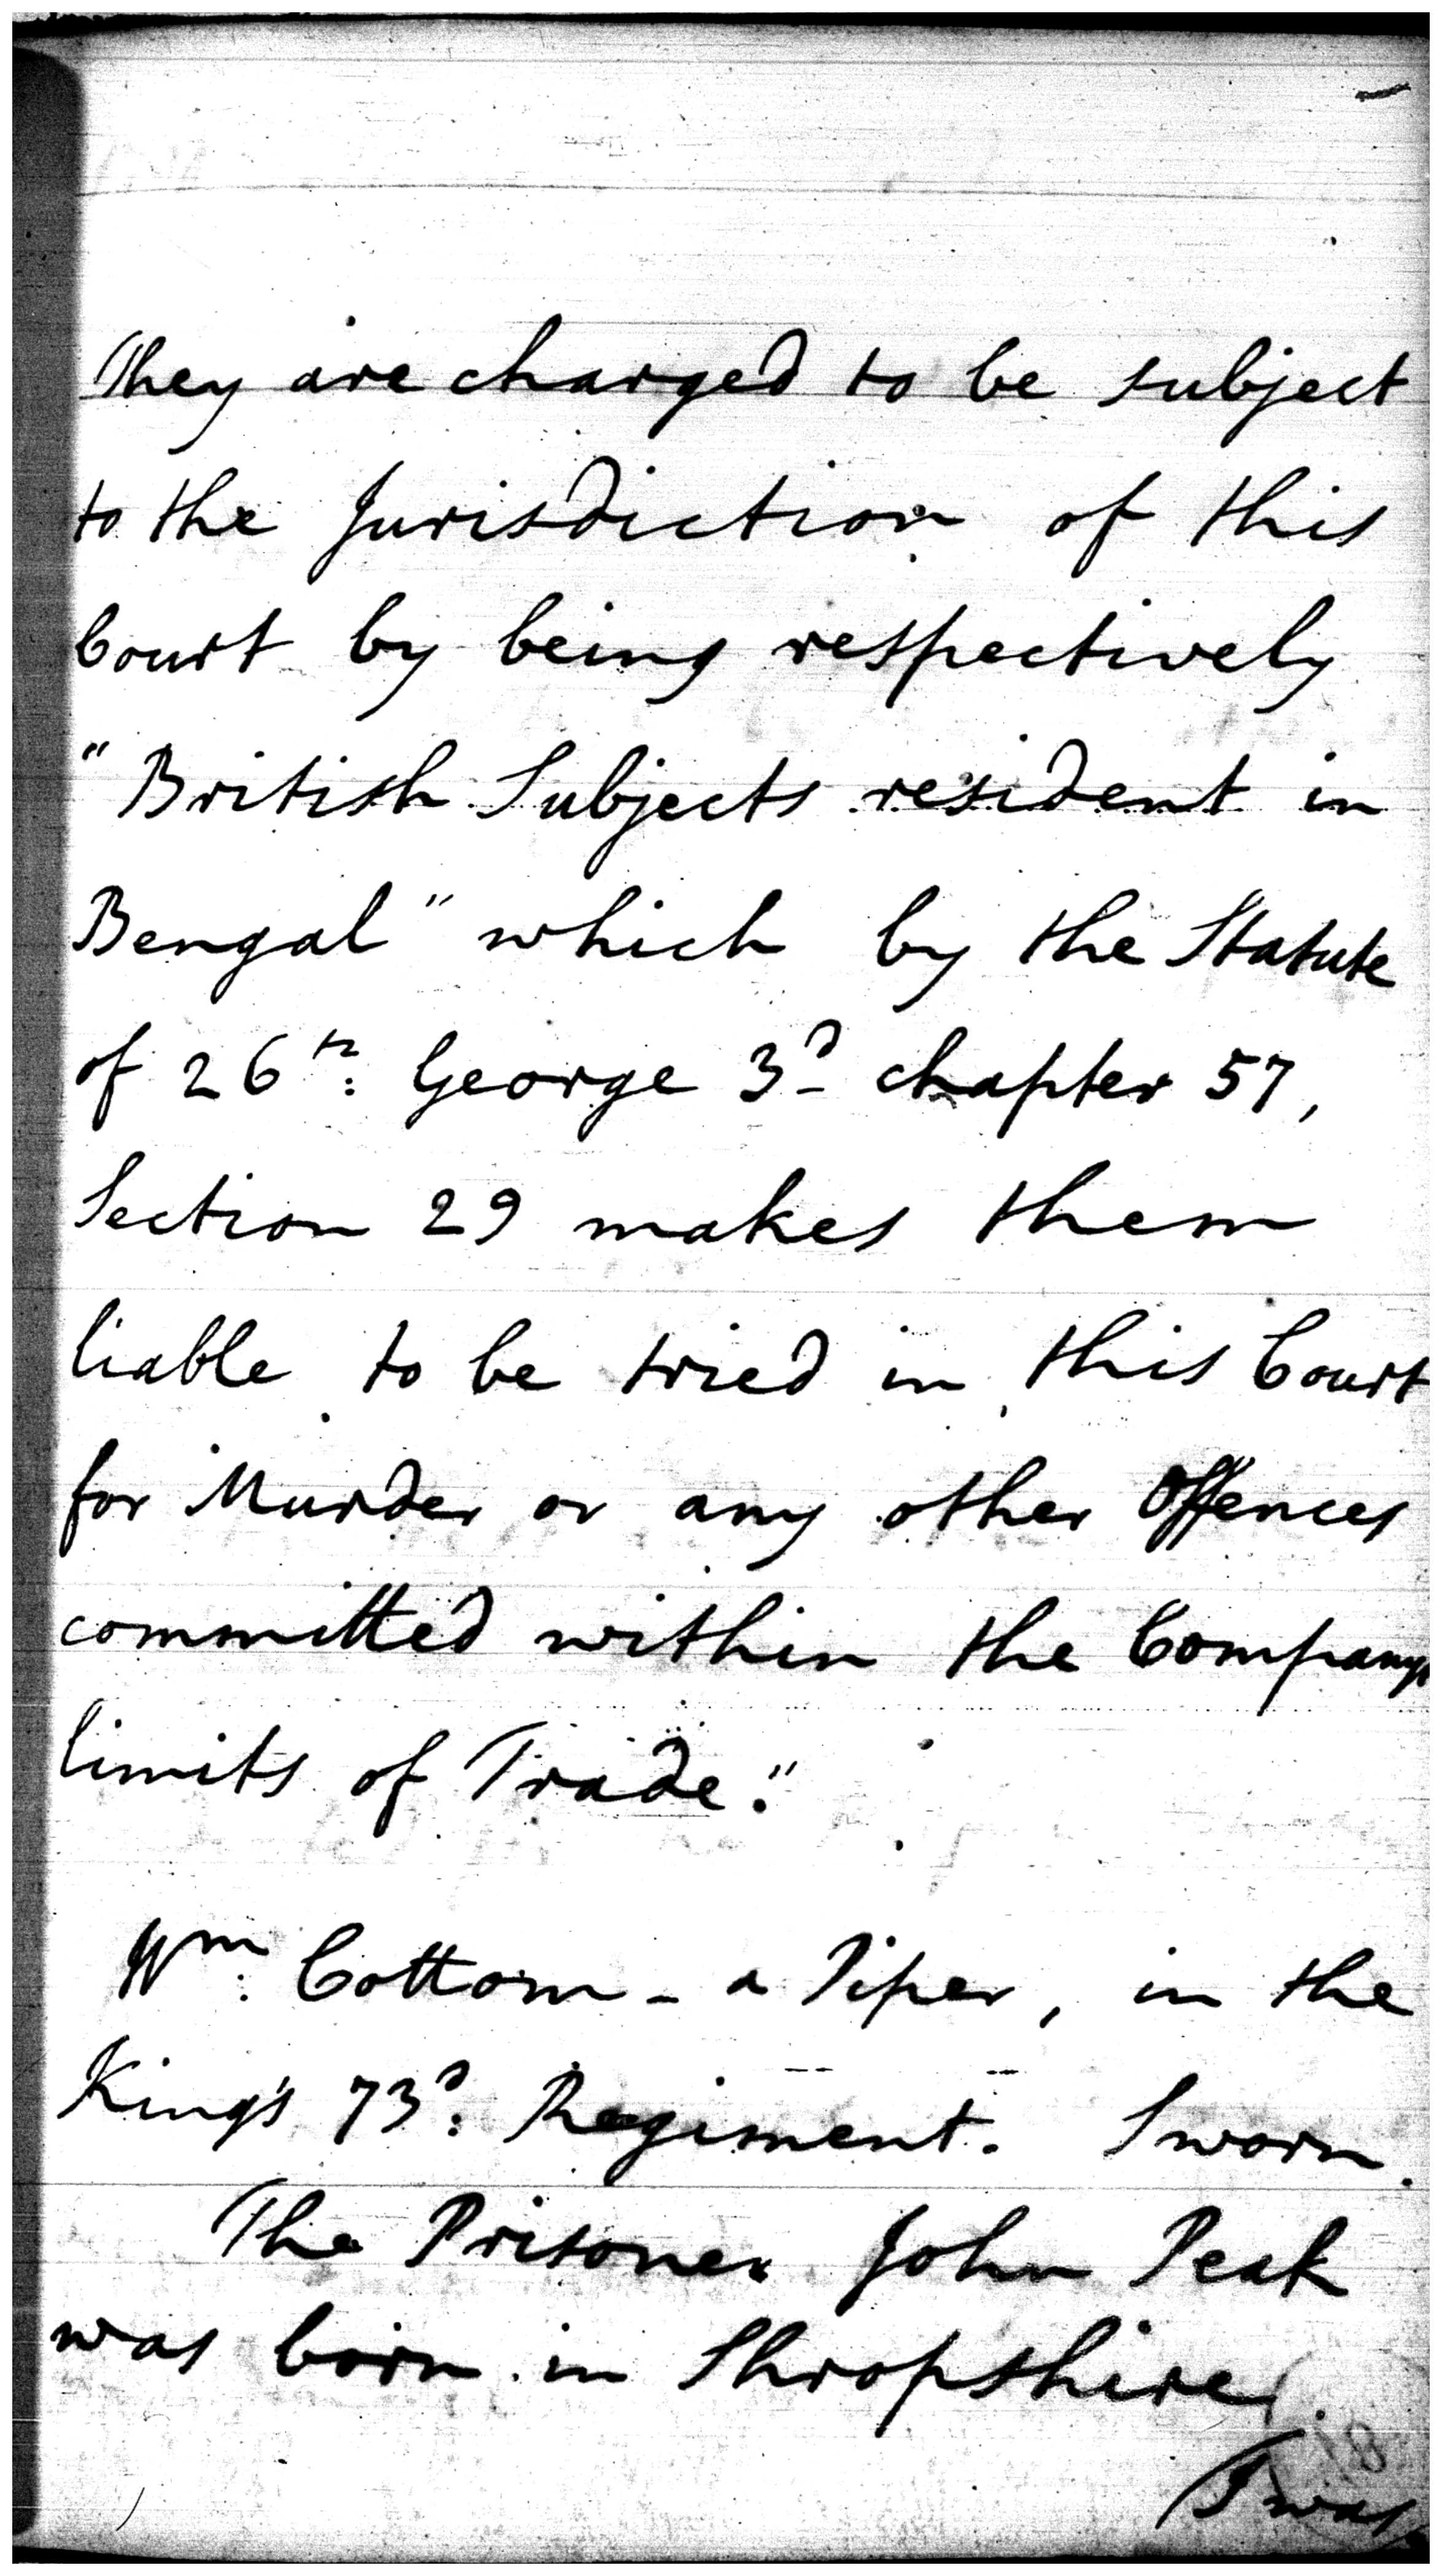 They are charged to be subject
to the Jurisdiction of this
Court by being respectively
"British Subjects resident in
Bengal" which by the Statute
of 26th: George 3d chapter 57,
Section 29 makes them
liable to be tried in this Court
for Murder or any other Offences
committed within the Companys
limits of Trade."
Wm: Cottom - a Piper, in the
King's 73d: Regiment. Sworn.
The Prisoner John Peak
was born in Shropshire
I was